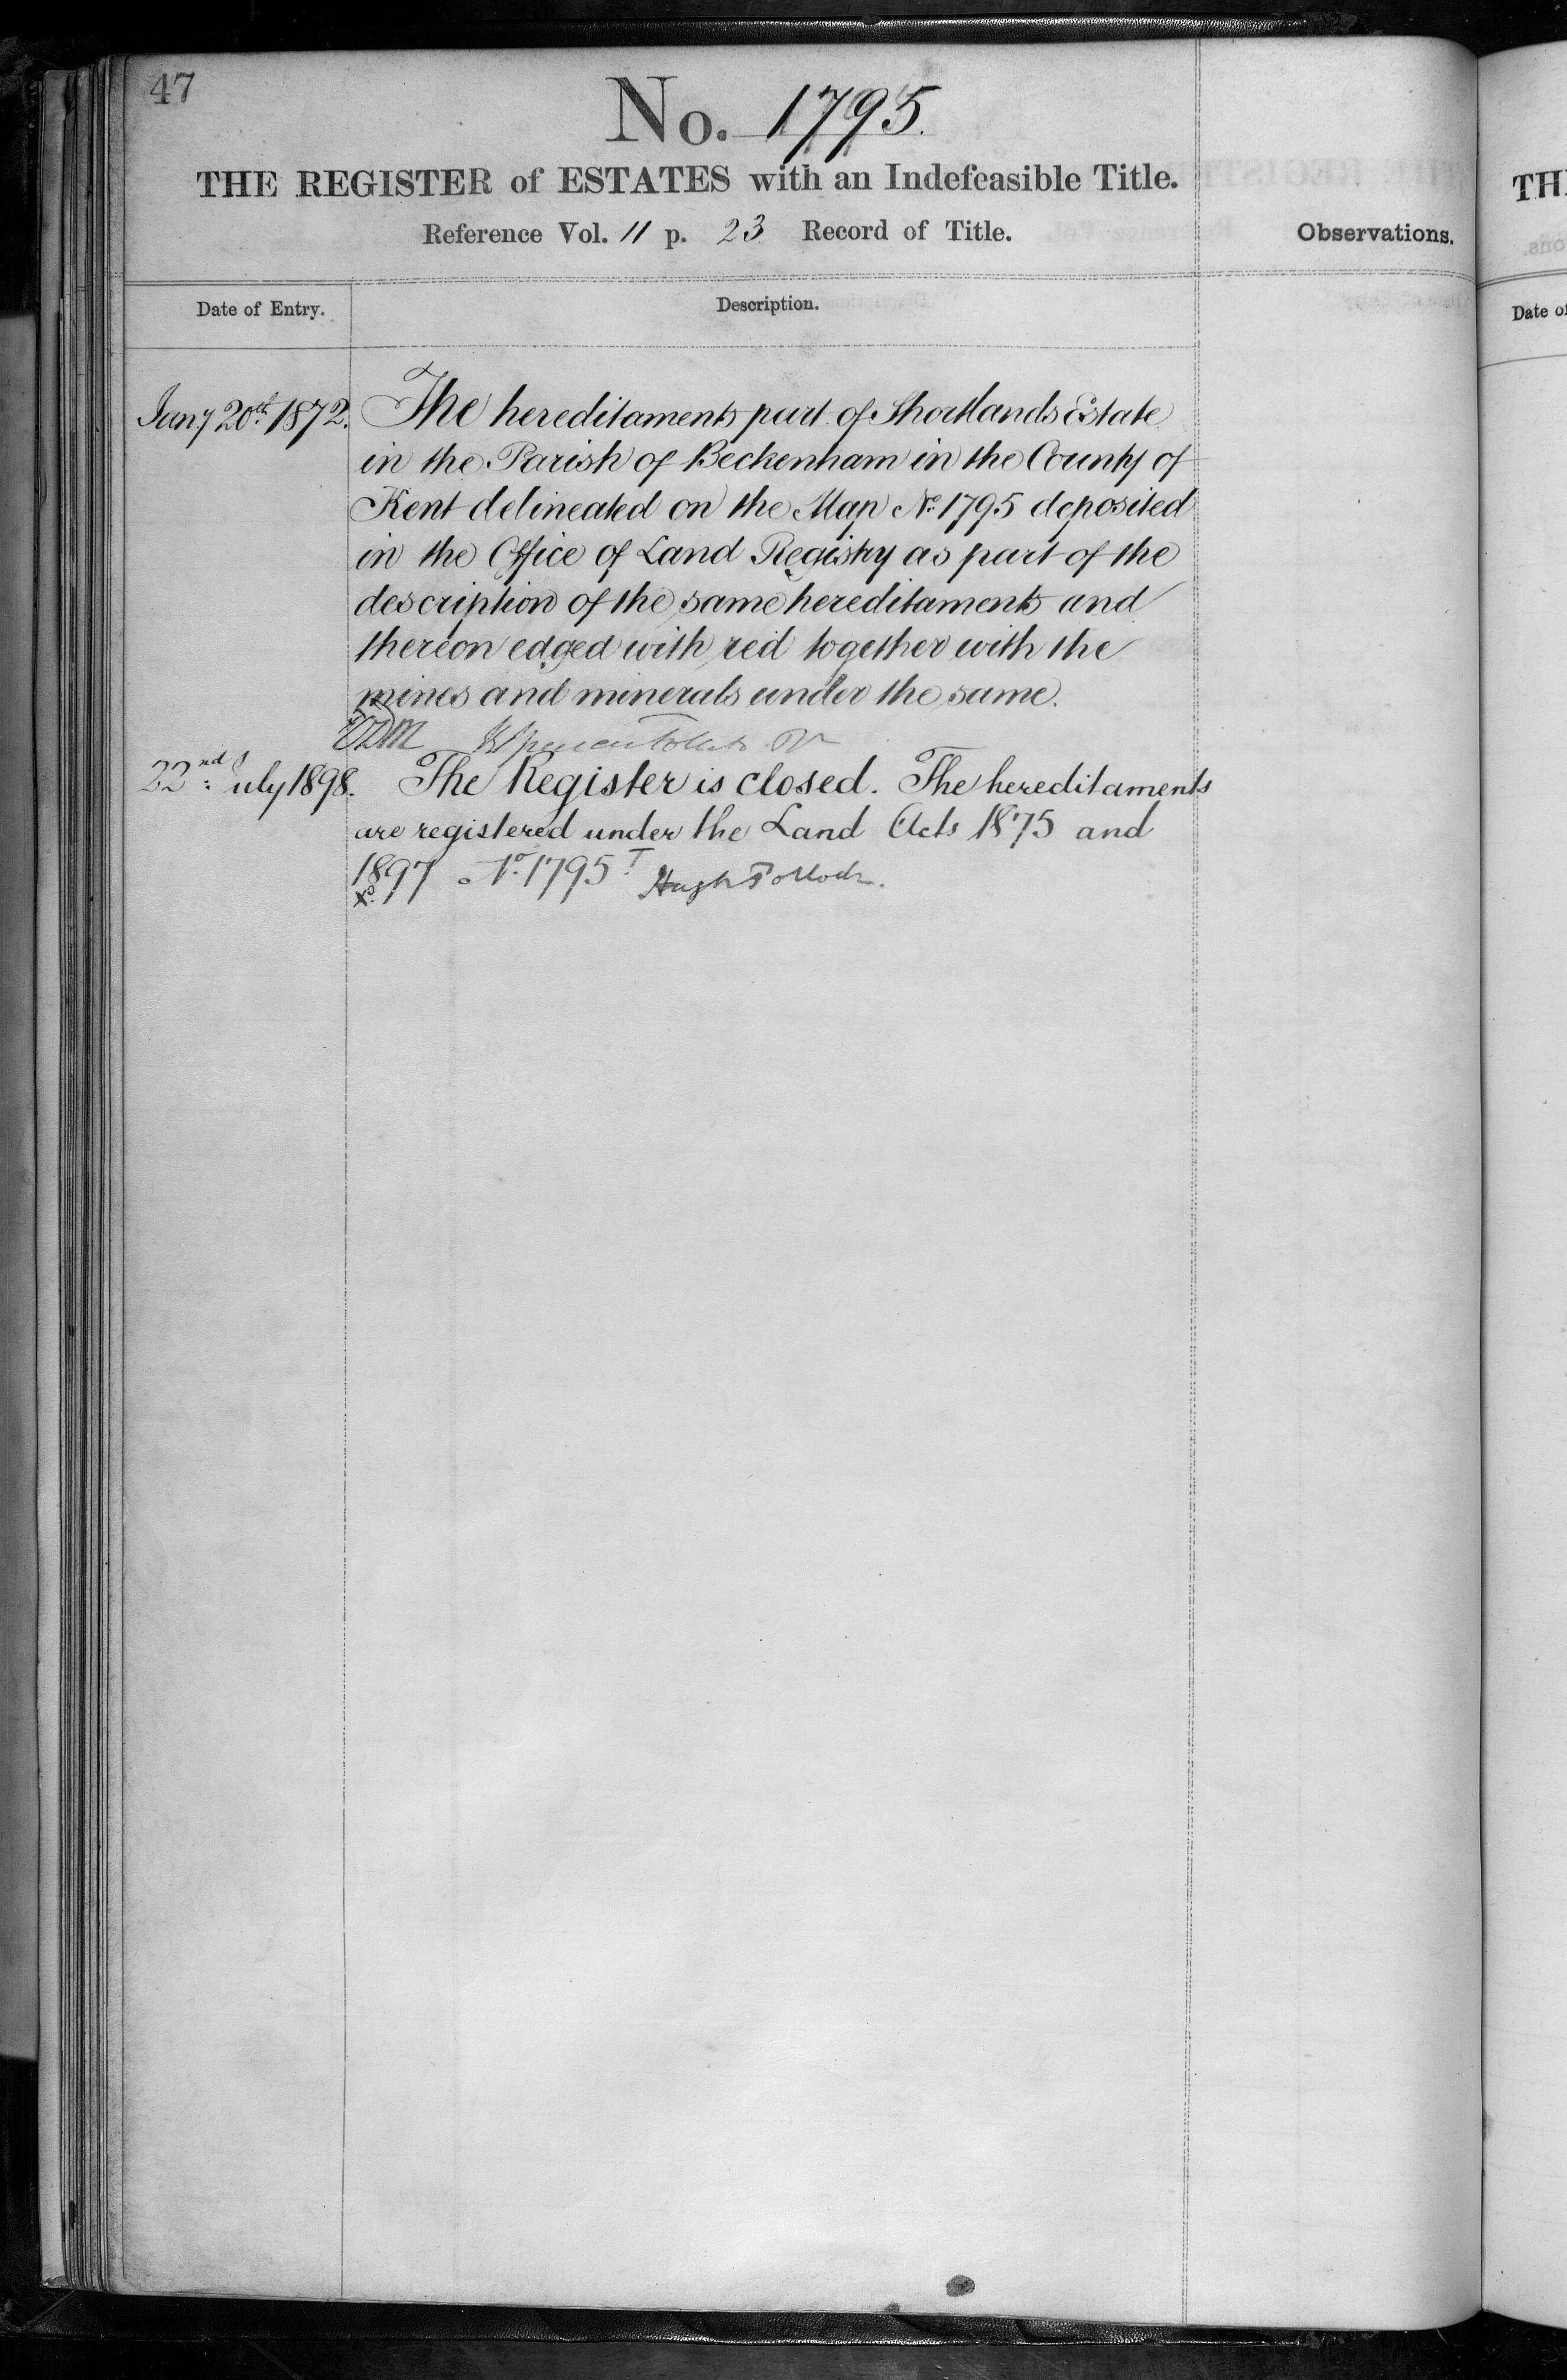 47
No. 1795.
THE REGISTER of ESTATES with an Indefeasible Title.
Reference Vol. 11 p. 23 Record of Title.
Observations.
Date of Entry.
Description.
Jany 20th 1872. The hereditaments part of Shortlands Estate
in the Parish of Beckenham in the County of
Kent delineated on the Map No. 1795 deposited
in the Office of Land Registry as part of the
description of the same hereditaments and
thereon edged with red together with the
mines and minerals under the same.
22nd July 1898. The Register is closed. The hereditaments
are registered under the Land Acts 1875 and
1897 No. 1795 T Hugh Pollock.
TH
Date of